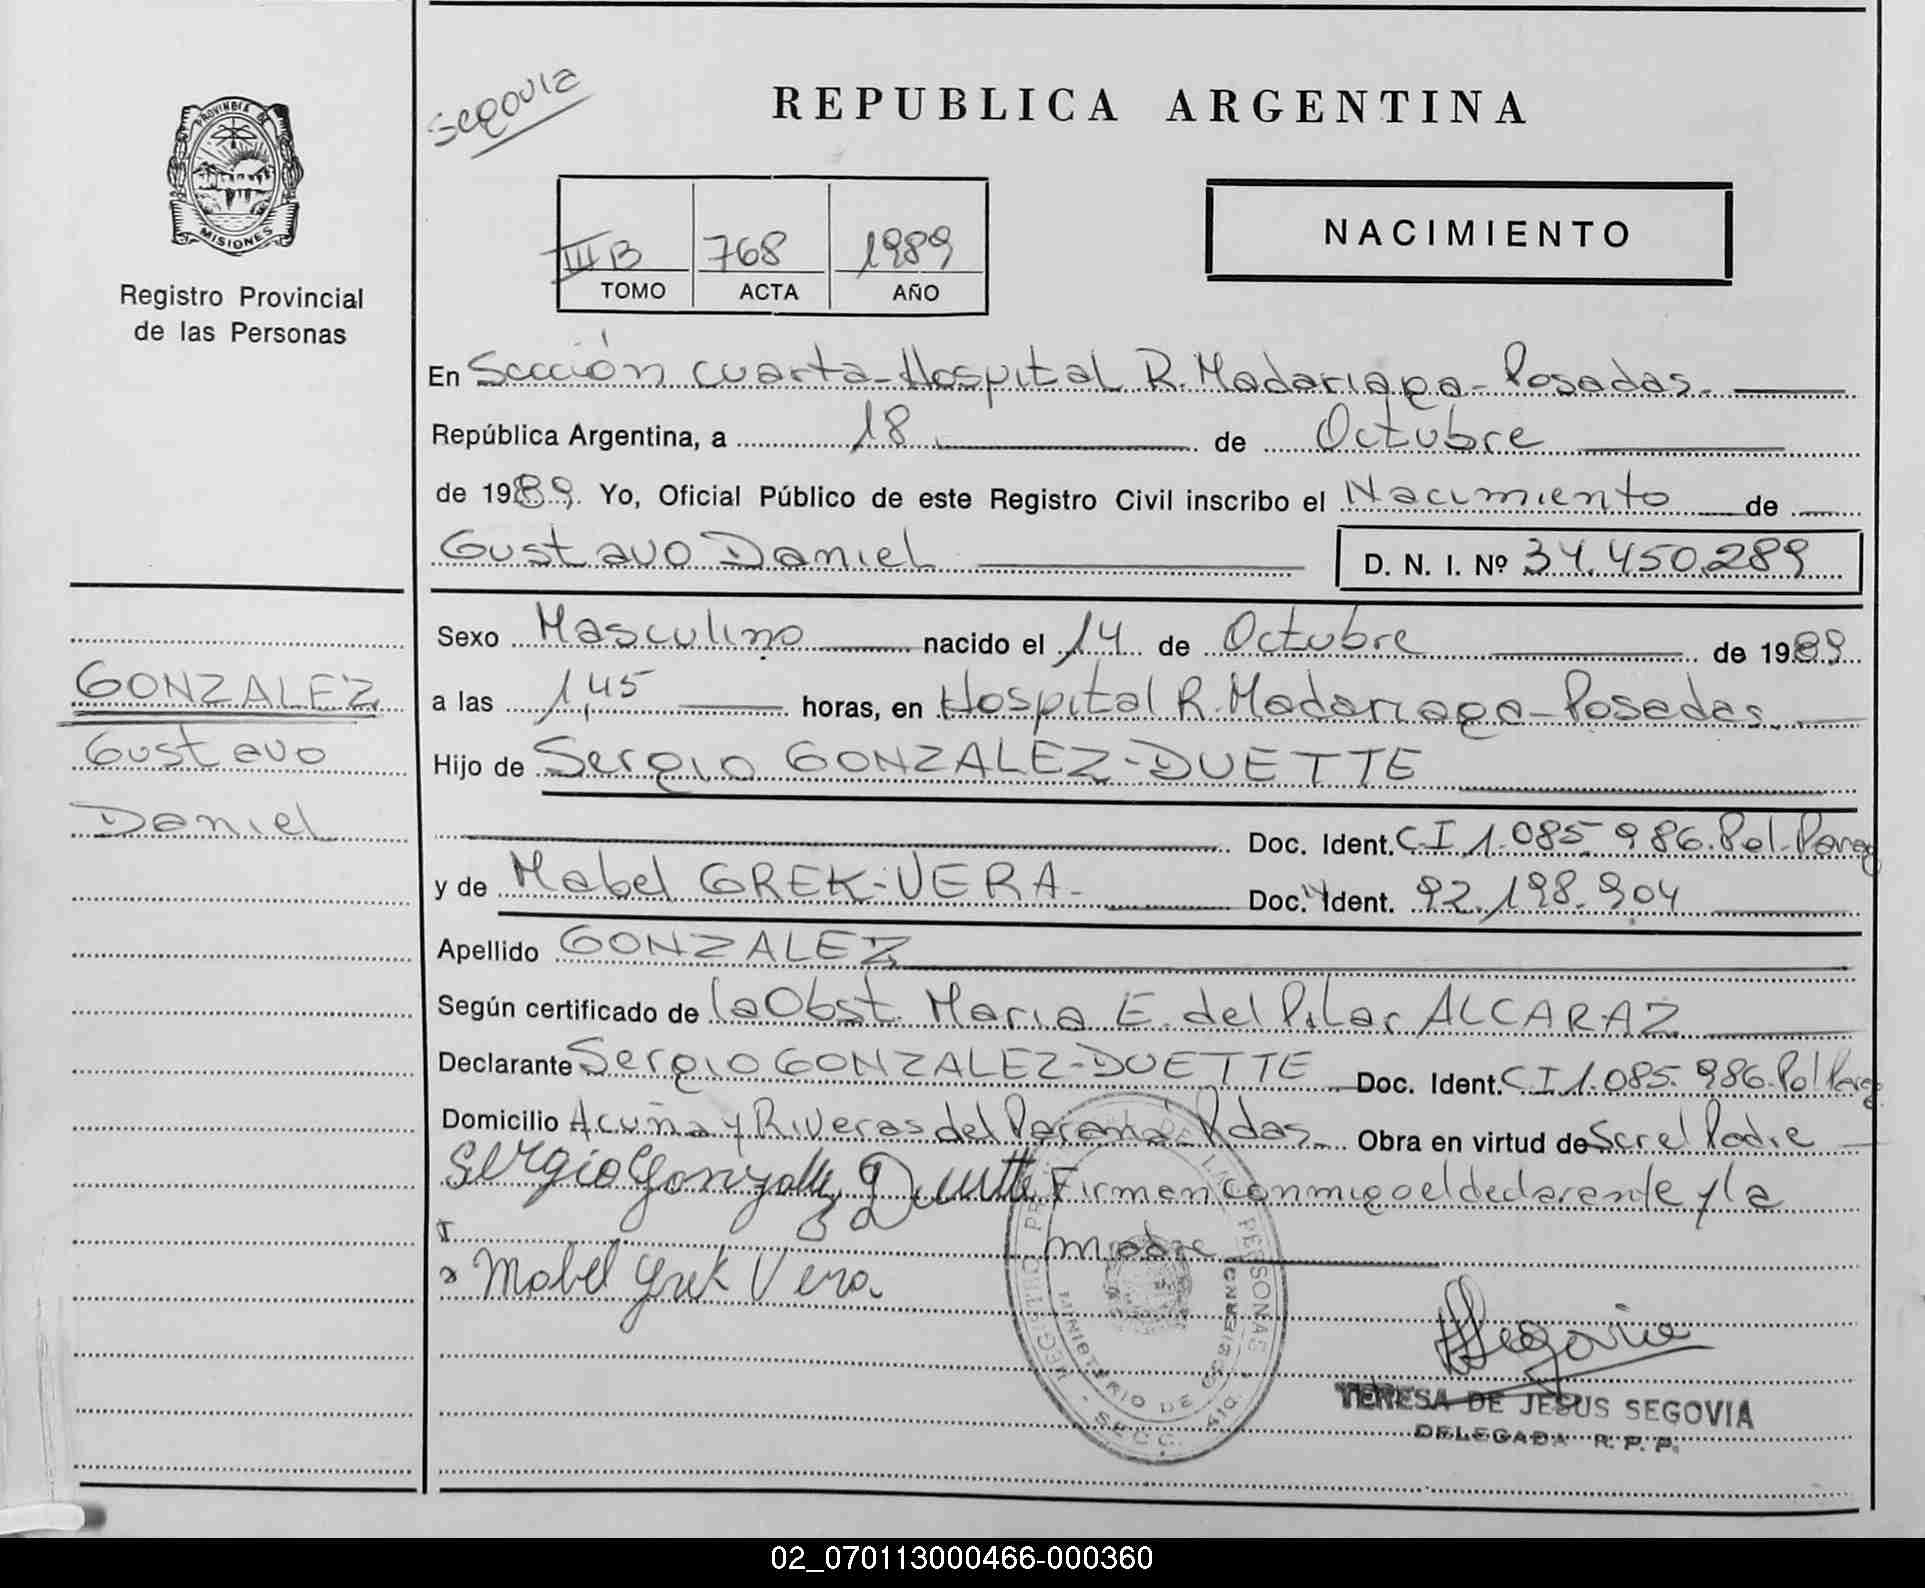 Segovia
REPUBLICA ARGENTINA
PROVINCIA DE
MISIONES
Registro Provincial
de las Personas
III B 768 1989
TOMO ACTA AÑO
NACIMIENTO
En Sección cuarta-Hospital R. Madariaga-Posadas.
República Argentina, a 18 de Octubre
de 1989. Yo, Oficial Público de este Registro Civil inscribo el Nacimiento de
Gustavo Daniel D. N. I. Nº 34.450.289
Sexo Masculino nacido el 14 de Octubre de 1989
GONZALEZ
Gustavo
Daniel
a las 1,45 horas, en Hospital R. Madariaga-Posadas.
Hijo de Sergio GONZALEZ-DUETTE
Doc. Ident. CI 1.085.986.Pol.Parag
y de Mabel GREK-VERA- Doc. Ident. 92.198.904
Apellido GONZALEZ
Según certificado de la Obst. Maria E. del Pilar ALCARAZ
Declarante Sergio GONZALEZ-DUETTE Doc. Ident. CI 1.085.986.Pol Parg
Domicilio Acuña y Riveras del Paraná Pdas. Obra en virtud de Ser el Padre
Sergio Gonzalez Duette Firman conmigo el declarante y la
madre
Mabel Grek Vera
REGISTRO PROVINCIAL DE LAS PERSONAS
MINISTERIO DE GOBIERNO
SECC. 4ta.
Segovia
TERESA DE JESUS SEGOVIA
DELEGADA R. P. P.
02_070113000466-000360